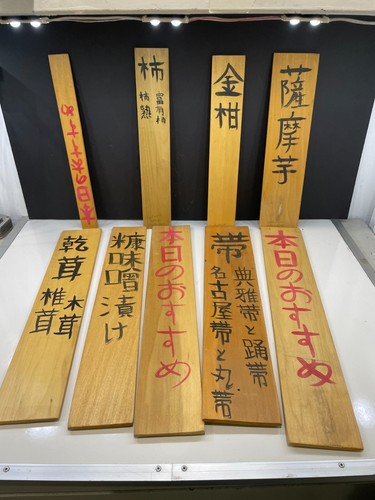 本日のおすすめ
柿
富有柿
柿熟
金柑
薩摩芋
乾茸
木茸
椎茸
糠味噌漬け
本日のおすすめ
帯
典雅帯と踊帯
名古屋帯と丸帯
本日のおすすめ